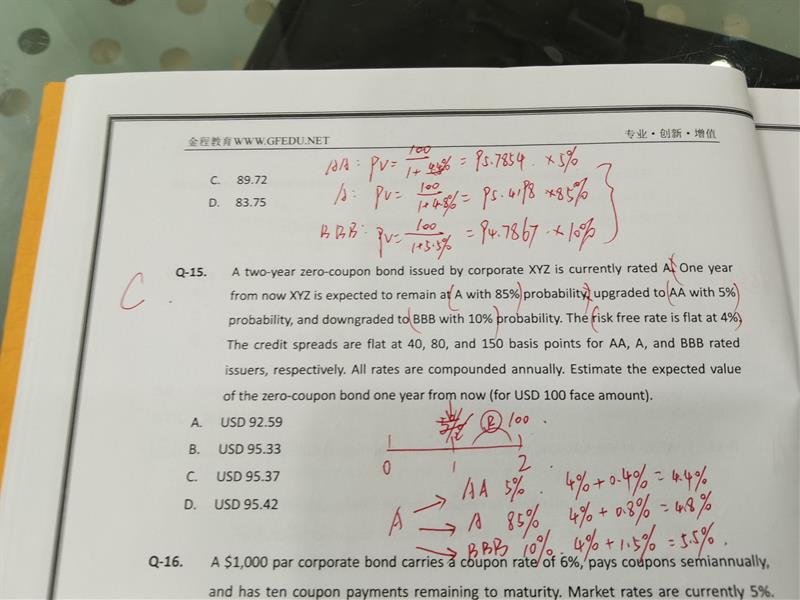 金程教育WWW.GFEDU.NET 专业·创新·增值
AA: PV = 100 / 1+4.4% = 95.7854 × 5%
C. 89.72
A: PV = 100 / 1+4.8% = 95.4198 × 85%
D. 83.75
BBB: PV = 100 / 1+5.5% = 94.7867 × 10%
C
Q-15. A two-year zero-coupon bond issued by corporate XYZ is currently rated A. One year
from now XYZ is expected to remain at A with 85% probability, upgraded to AA with 5%
probability, and downgraded to BBB with 10% probability. The risk free rate is flat at 4%.
The credit spreads are flat at 40, 80, and 150 basis points for AA, A, and BBB rated
issuers, respectively. All rates are compounded annually. Estimate the expected value
of the zero-coupon bond one year from now (for USD 100 face amount).
A. USD 92.59
R 100
B. USD 95.33
0 1 2
C. USD 95.37
AA 5% 4%+0.4%=4.4%
D. USD 95.42
A A 85% 4%+0.8%=4.8%
BBB 10% 4%+1.5%=5.5%
Q-16. A $1,000 par corporate bond carries a coupon rate of 6%, pays coupons semiannually,
and has ten coupon payments remaining to maturity. Market rates are currently 5%.